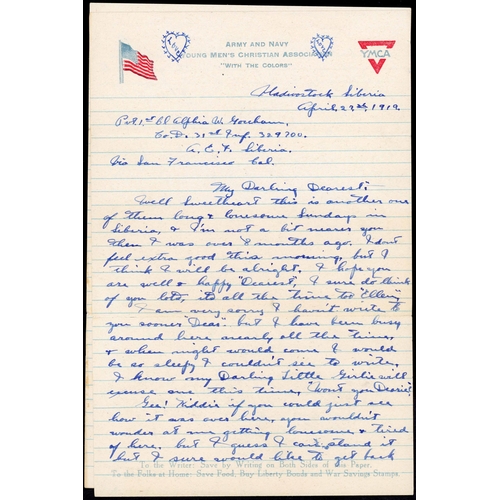 ARMY AND NAVY
YOUNG MEN'S CHRISTIAN ASSOCIATION
"WITH THE COLORS"
YMCA
Vladivostock Siberia
April, 27th, 1919.
Pvt 1st Cl Alphia W. Goreham.
Co. D. 31st Inf. 329700.
A. E. F. Siberia.
Via San Francisco Cal.
My Darling Dearest;
Well Sweetheart this is another one
of them long & lonesome Sundays in
Siberia, & I'm not a bit nearer you
then I was over 8 months ago. I don't
feel extra good this morning, but I
think I will be alright. I hope you
are well & happy "Dearest", I sure do think
of you lots, it's all the time to "Ellen,
I am very sorry I haven't write to
you sooner "Dear" but I have been busy
around here nearly all the time,
& when night would come I would
be so sleepy I couldn't see to write,
I know my Darling Little Girlie will
excuse me this time, Wont you Dearie?
Gee! Kiddie if you could just see
how it was over here, you wouldn't
wonder at me getting lonesome & tired
of here, but I guess I can stand it
but I sure would like to get back
To the Writer: Save by Writing on Both Sides of this Paper.
To the Folks at Home: Save Food, Buy Liberty Bonds and War Savings Stamps.